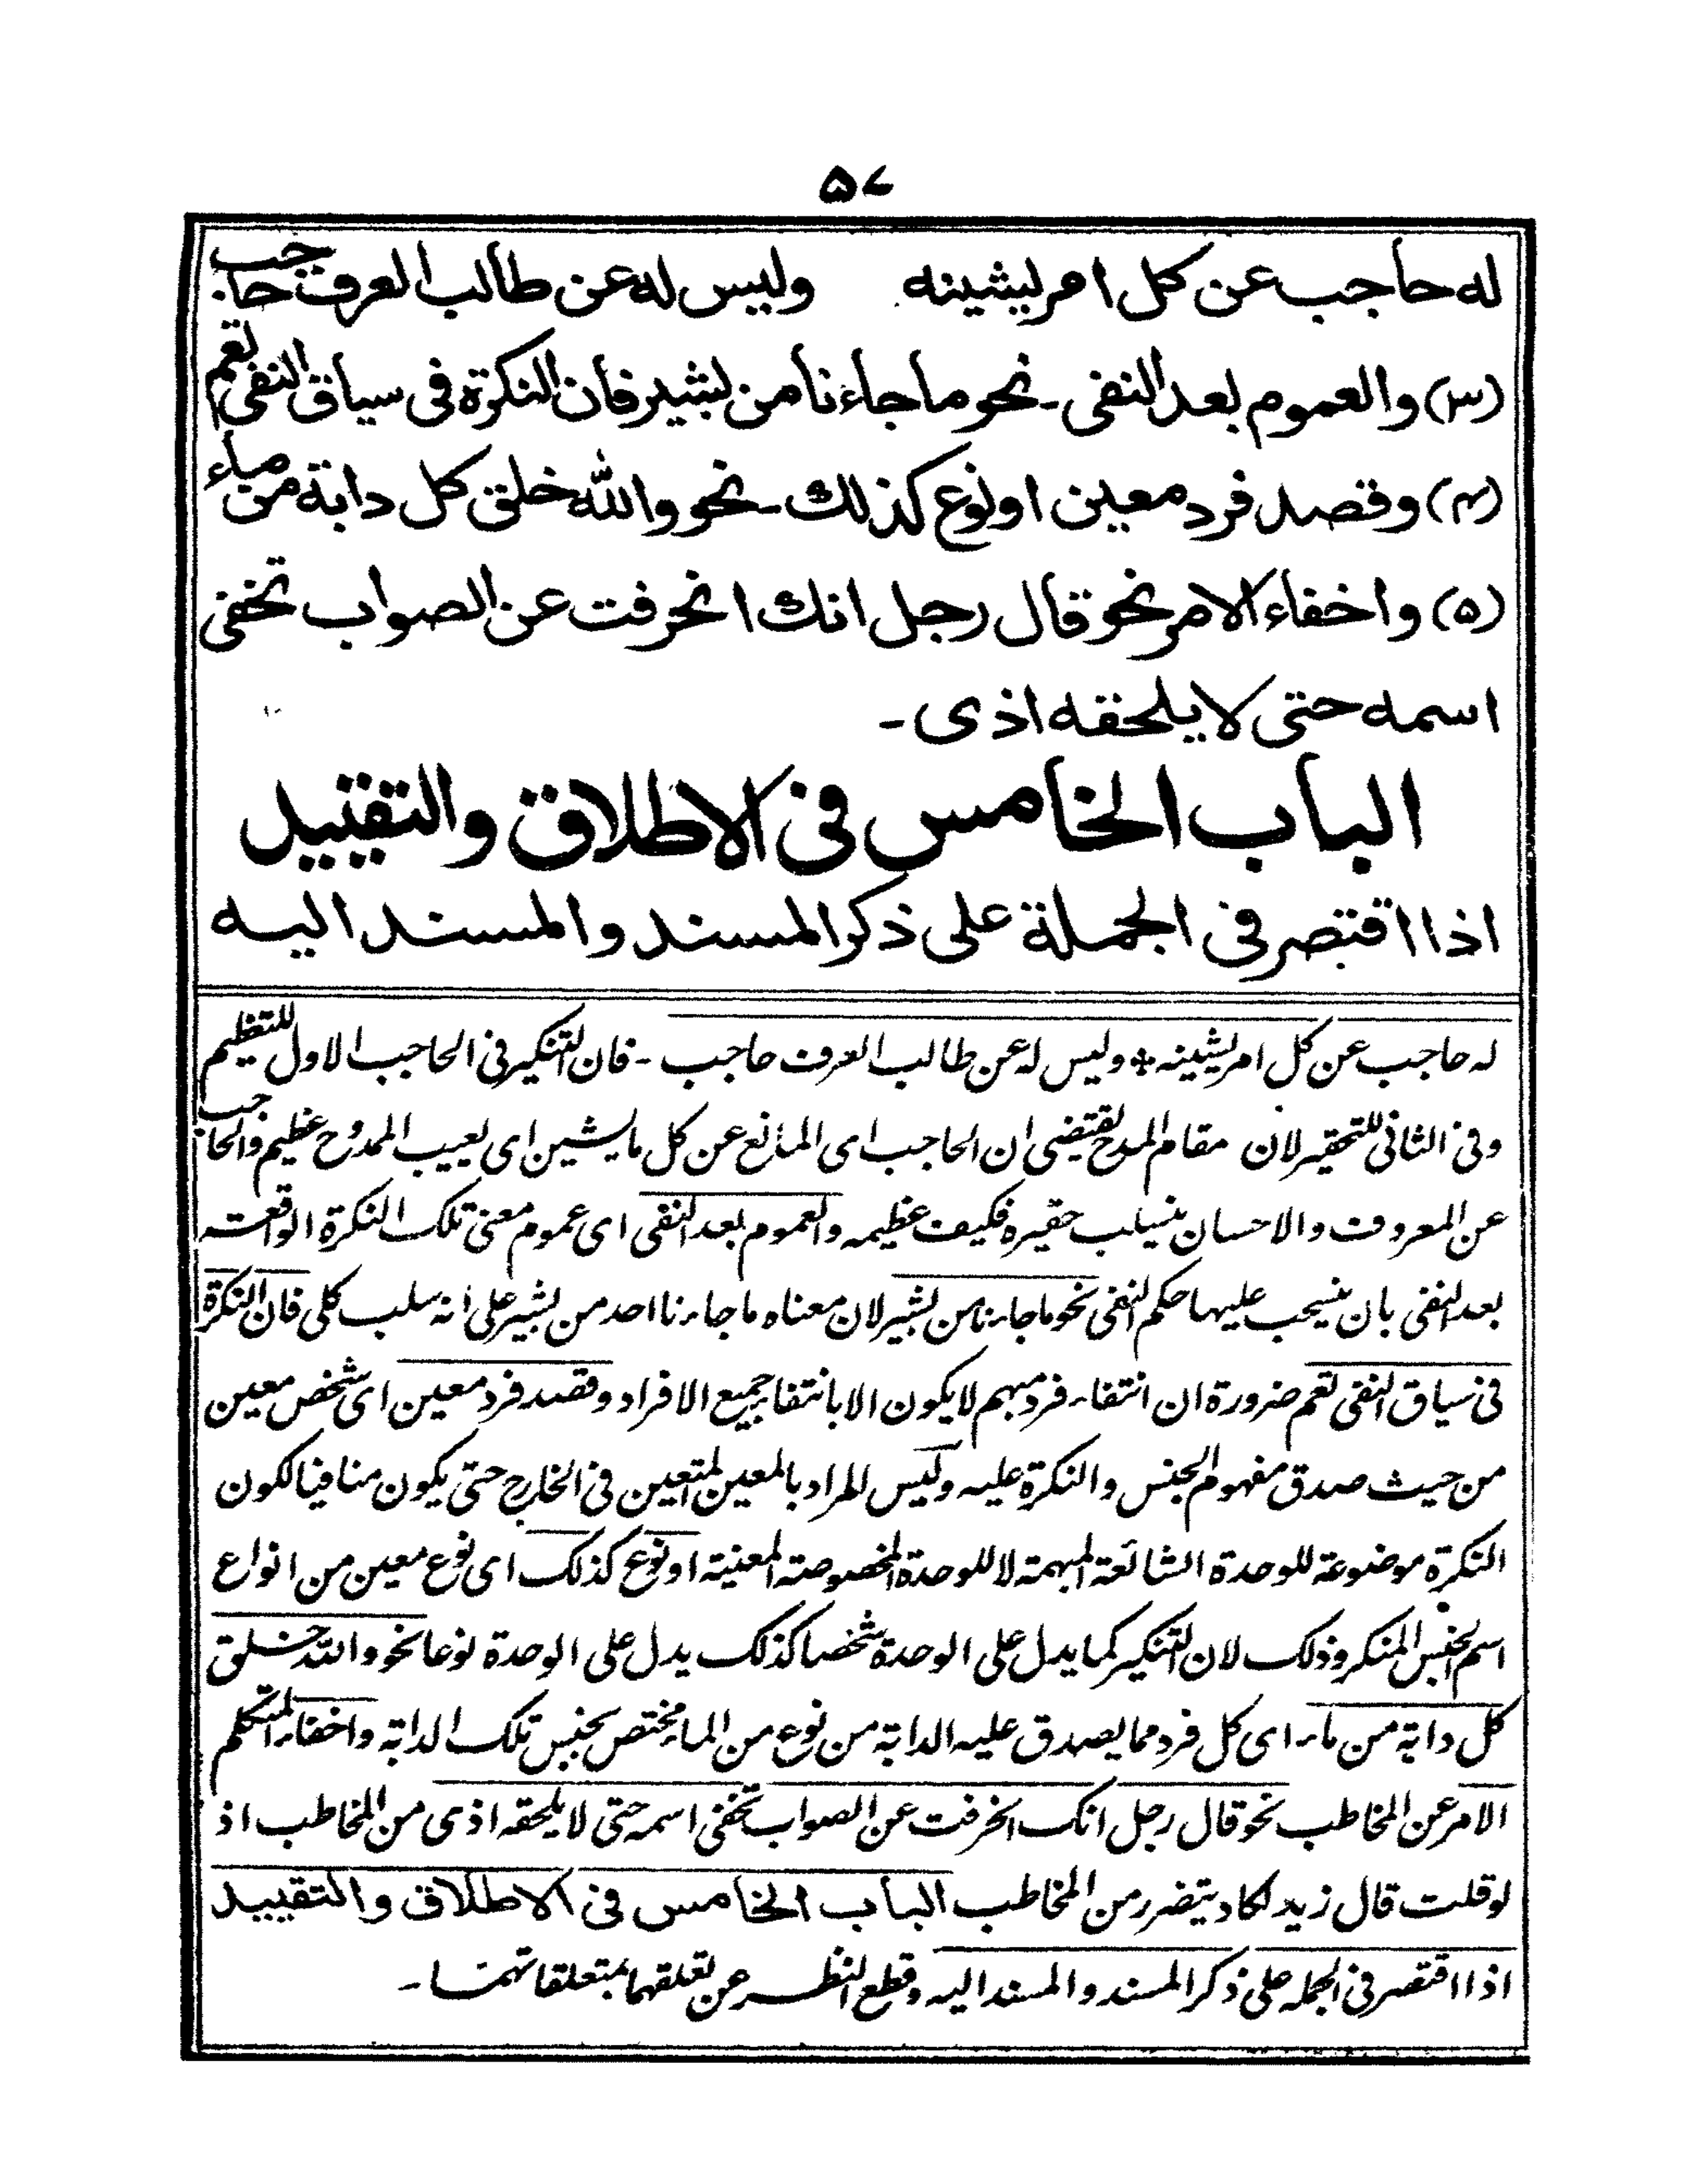 ۵۷
له حاجب عن كل امر يشينه وليس له عن طالب العرف حاجب
(۳) والعموم بعد النفى ـ نحو ما جاءنا من بشير فان النكرة فى سياق النفى تعم
(۴) وقصد فرد معين او نوع كذلك ـ نحو والله خلق كل دابة من ماء
(۵) واخفاء الامر نحو قال رجل انك انحرفت عن الصواب تخفى
اسمه حتى لا يلحقه اذى ـ
الباب الخامس فى الاطلاق والتقييد
اذا اقتصر فى الجملة على ذكر المسند والمسند اليه
له حاجب عن كل امر يشينه * وليس له عن طالب العرف حاجب ـ فان التنكير فى الحاجب الاول للتعظيم
وفى الثانى للتحقير لان مقام المدح يقتضى ان الحاجب اى المانع عن كل ما يشين اى يعيب الممدوح عظيم والحاجب
عن المعروف والاحسان ينسلب حقيره فكيف عظيمه والعموم بعد النفى اى عموم معنى تلك النكرة الواقعة
بعد النفى بان ينسحب عليها حكم النفى نحو ما جاءنا من بشير لان معناه ما جاءنا احد من بشير على انه سلب كلى فان النكرة
فى سياق النفى تعم ضرورة ان انتفاء فرد مبهم لا يكون الا بانتفاء جميع الافراد وقصد فرد معين اى شخص معين
من حيث صدق مفهوم الجنس والنكرة عليه وليس المراد بالمعين المتعين فى الخارج حتى يكون منافيا لكون
النكرة موضوعة للوحدة الشائعة المبهمة لا للوحدة المخصوصة المعينة او نوع كذلك اى نوع معين من انواع
اسم الجنس المنكر وذلك لان التنكير كما يدل على الوحدة شخصا كذلك يدل على الوحدة نوعا نحو والله خلق
كل دابة من ماء اى كل فرد مما يصدق عليه الدابة من نوع من الماء مختص بجنس تلك الدابة واخفاء المتكلم
الامر عن المخاطب نحو قال رجل انك انحرفت عن الصواب تخفى اسمه حتى لا يلحقه اذى من المخاطب اذ
لو قلت قال زيد لكاد يتضرر من المخاطب الباب الخامس فى الاطلاق والتقييد
اذا اقتصر فى الجملة على ذكر المسند والمسند اليه وقطع النظر عن تعلقهما بمتعلقاتهما ـ